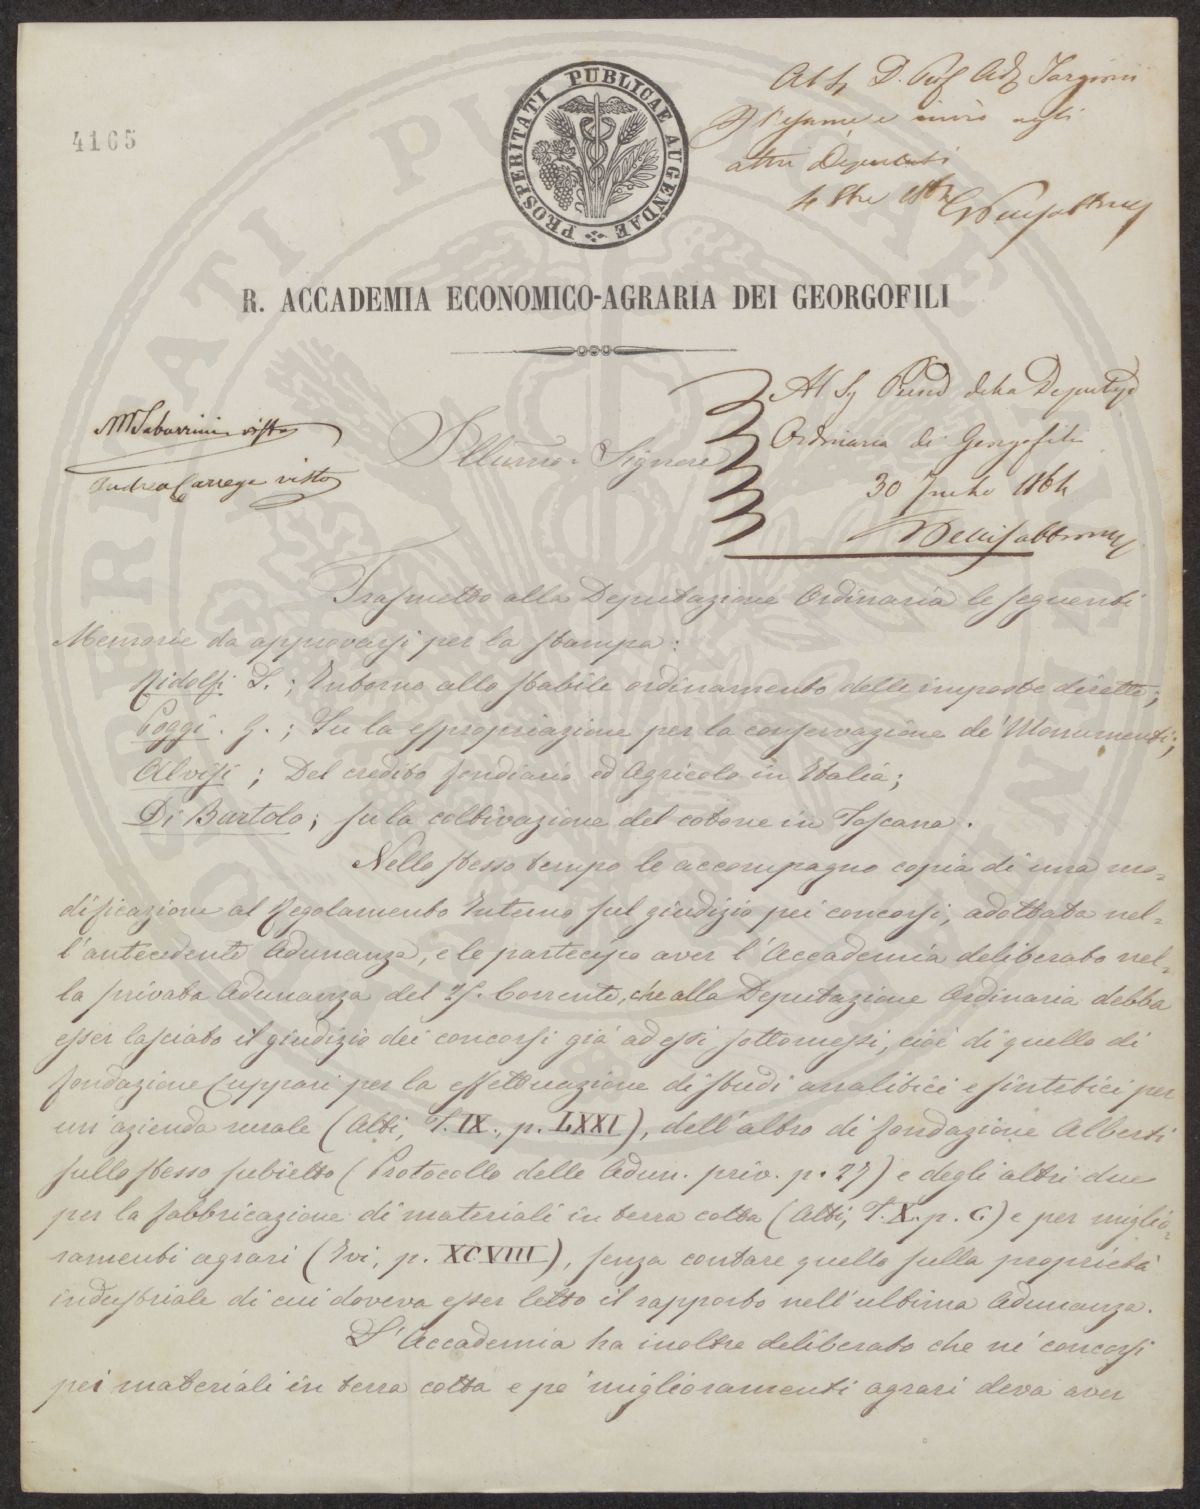 4165
PROSPERITATI PUBLICAE AUGENDAE
D. Prof Targioni
l'esame e invio agli
altri Deputati
R. ACCADEMIA ECONOMICO-AGRARIA DEI GEORGOFILI
Al Sg Presid della Deputaz
Ordinaria di Georgofili
30 1864
M Tabarrini visto
Andrea Carega visto
Illumo. Signore
Trasmetto alla Deputazione Ordinaria le seguenti
Memorie da approvarsi per la stampa:
Ridolfi L.; Intorno allo stabile ordinamento delle imposte dirette;
Poggi. G.; Su la espropriazione per la conservazione de' Monumenti;
Alvisi; Del credito fondiario ed Agricolo in Italia;
Di Bartolo; su la coltivazione del cotone in Toscana.
Nello stesso tempo le accompagno copia di una mo=
dificazione al Regolamento Interno sul giudizio pei concorsi, adottata nel=
l'antecedente Adunanza, e le partecipo aver l'Accademia deliberato nel=
la privata Adunanza del Corrente, che alla Deputazione Ordinaria debba
esser lasciato il giudizio dei concorsi già ad essi sottomessi, cioè di quello di
fondazione Cuppari per la effettuazione di studi analitici e sintetici per
un'azienda rurale (Atti, T. IX., p. LXXI), dell'altro di fondazione Alberti
sullo stesso subietto (Protocollo delle Adun. priv. p. 27) e degli altri due
per la fabbricazione di materiali in terra cotta (Atti, T. X. p. C.) e per miglio=
ramenti agrari (Ivi, p. XCVIII), senza contare quello sulla proprietà
industriale di cui doveva esser letto il rapporto nell'ultima Adunanza.
L'Accademia ha inoltre deliberato che ne' concorsi
pei materiali in terra cotta e pe' miglioramenti agrari deva aver